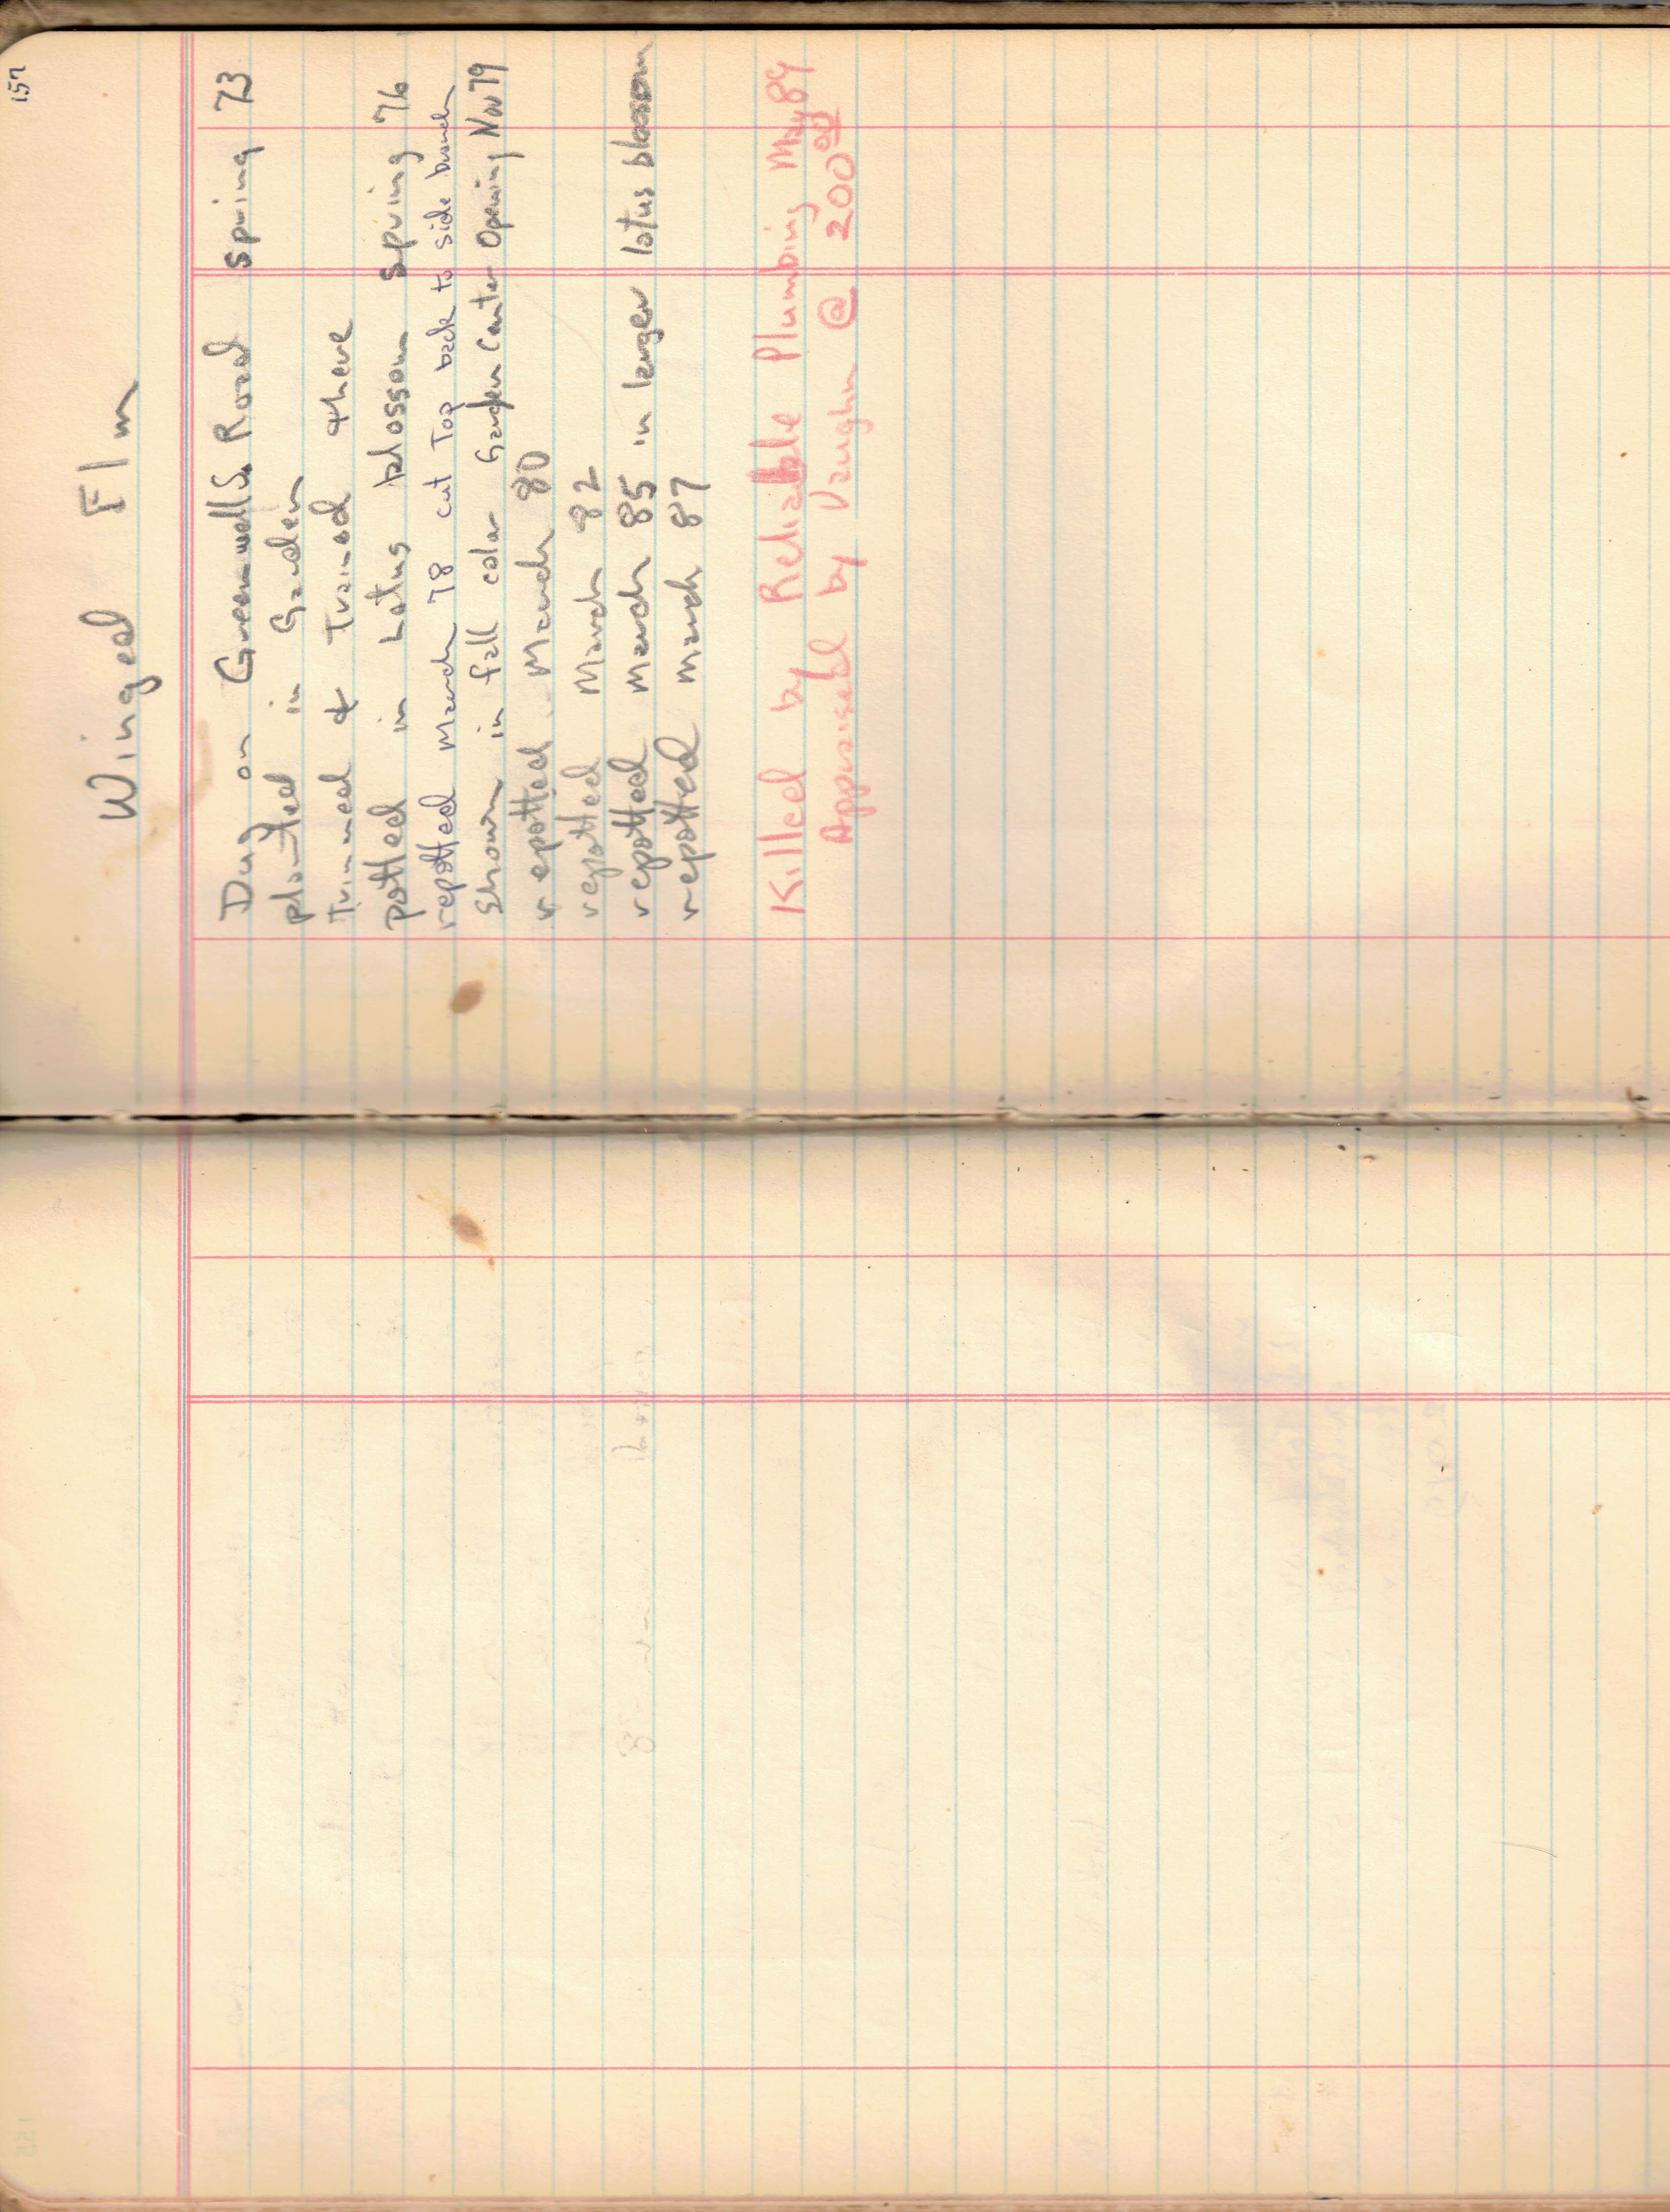 157
Winged Elm
Dug on Greenwell S. Road spring 73
planted in Garden
Trimmed & Trained there
potted in Lotus blossom spring 76
repotted March 78 cut Top back to side branch
Shown in fall color Garden Center Opening Nov 79
repotted March 80
repotted March 82
repotted March 85 in larger lotus blossom
repotted March 87
Killed by Reliable Plumbing May 89
Appraised by Vaughn @ 200⁰⁰